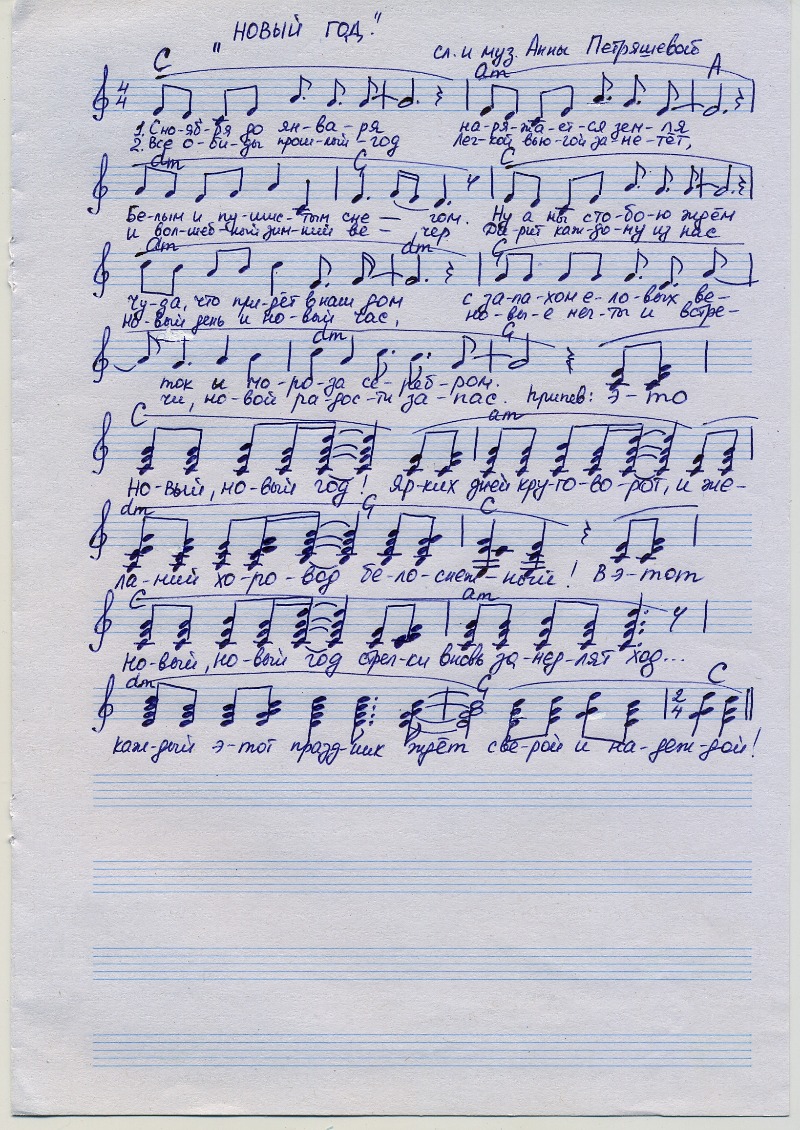 „НОВЫЙ ГОД."
сл. и муз. Анны Петряшевой
C am A
4/4
1. С но-яб-ря до ян-ва-ря на-ря-жа-ет-ся зем-ля
2. Все о-би-ды прош-лый год лег-кой вью-гой за-ме-тёт,
dm G C
Бе-лым и пу-шис-тым сне — гом. Ну а мы с то-бо-ю ждём
и вол-шеб-ный зим-ний ве — чер Да-рит каж-до-му из нас
am dm G
Чу-да, что при-дёт в наш дом с за-па-хом е-ло-вых ве-
но-вый день и но-вый час, но-вы-е меч-ты и встре-
dm G
ток и мо-ро-за се-реб-ром.
чи, но-вой ра-дос-ти за-пас. Припев: Э-то
C am
Но-вый, но-вый год! Яр-ких дней кру-го-во-рот, и же-
dm G C
ла-ний хо-ро-вод бе-ло-снеж-ный! В э-тот
C am
Но-вый, но-вый год стрел-ки вновь за-мед-лят ход...
dm G C
2/4
каж-дый э-тот празд-ник ждёт с ве-рой и на-деж-дой!